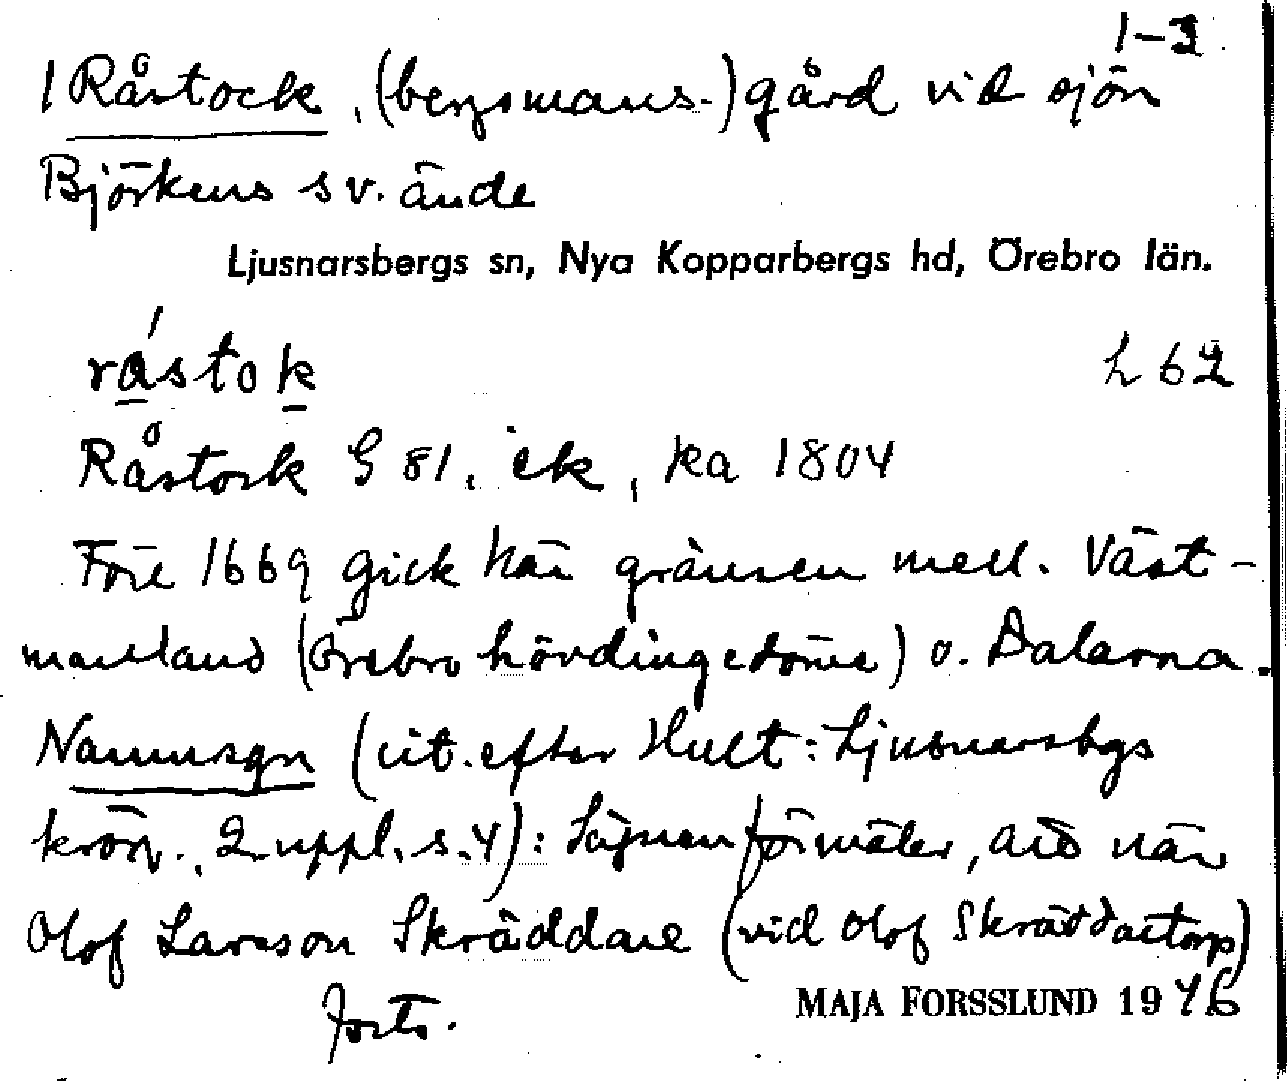 1-3
1 Råstock, (bergsmans-) gård vid sjön
Björkens sv. ände
Ljusnarsbergs sn, Nya Kopparbergs hd, Örebro län.
råstok L 62
Råstock G 81, ek, ka 1804
Före 1669 gick här gränsen mell. Väst-
manland (Örebro hövdingedöme) o. Dalarna.
Namnsgn (cit. efter Hult: Ljusnarsbgs
krön., 2 uppl. s. 4): Sägnen förmäler, att när
Olof Larsson Skräddare (vid Olof Skräddartorp)
forts.
MAJA FORSSLUND 1946